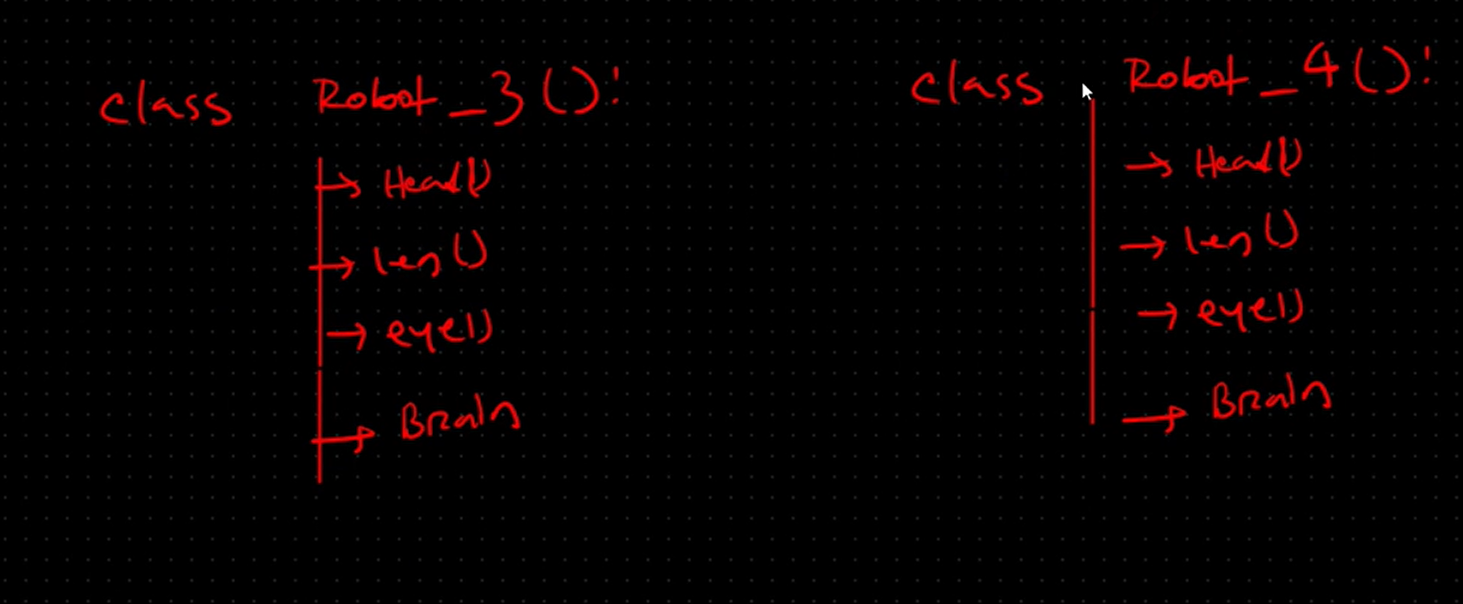 class Robot_3():
→ Head()
→ len()
→ eye()
→ Brain
class Robot_4():
→ Head()
→ len()
→ eye()
→ Brain